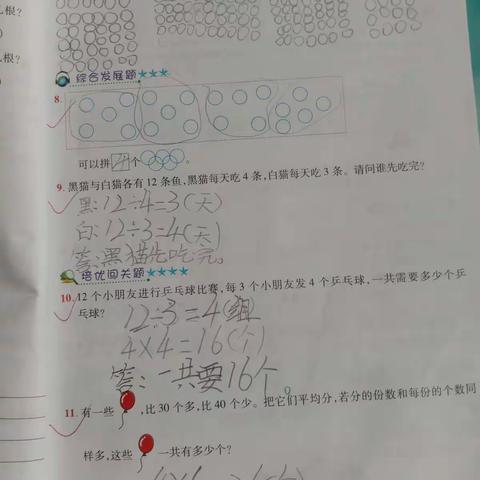 根?
根?
综合发展题★★★
8.
可以拼4个。
9. 黑猫与白猫各有 12 条鱼,黑猫每天吃 4 条,白猫每天吃 3 条。请问谁先吃完?
黑:12÷4=3(天)
白:12÷3=4(天)
答:黑猫先吃完。
培优闯关题★★★★
10. 12 个小朋友进行乒乓球比赛,每 3 个小朋友发 4 个乒乓球,一共需要多少个乒
乓球?
12÷3=4(组)
4×4=16(个)
答:一共要16个。
11. 有一些,比 30 个多,比 40 个少。把它们平均分,若分的份数和每份的个数同
样多,这些一共有多少个?